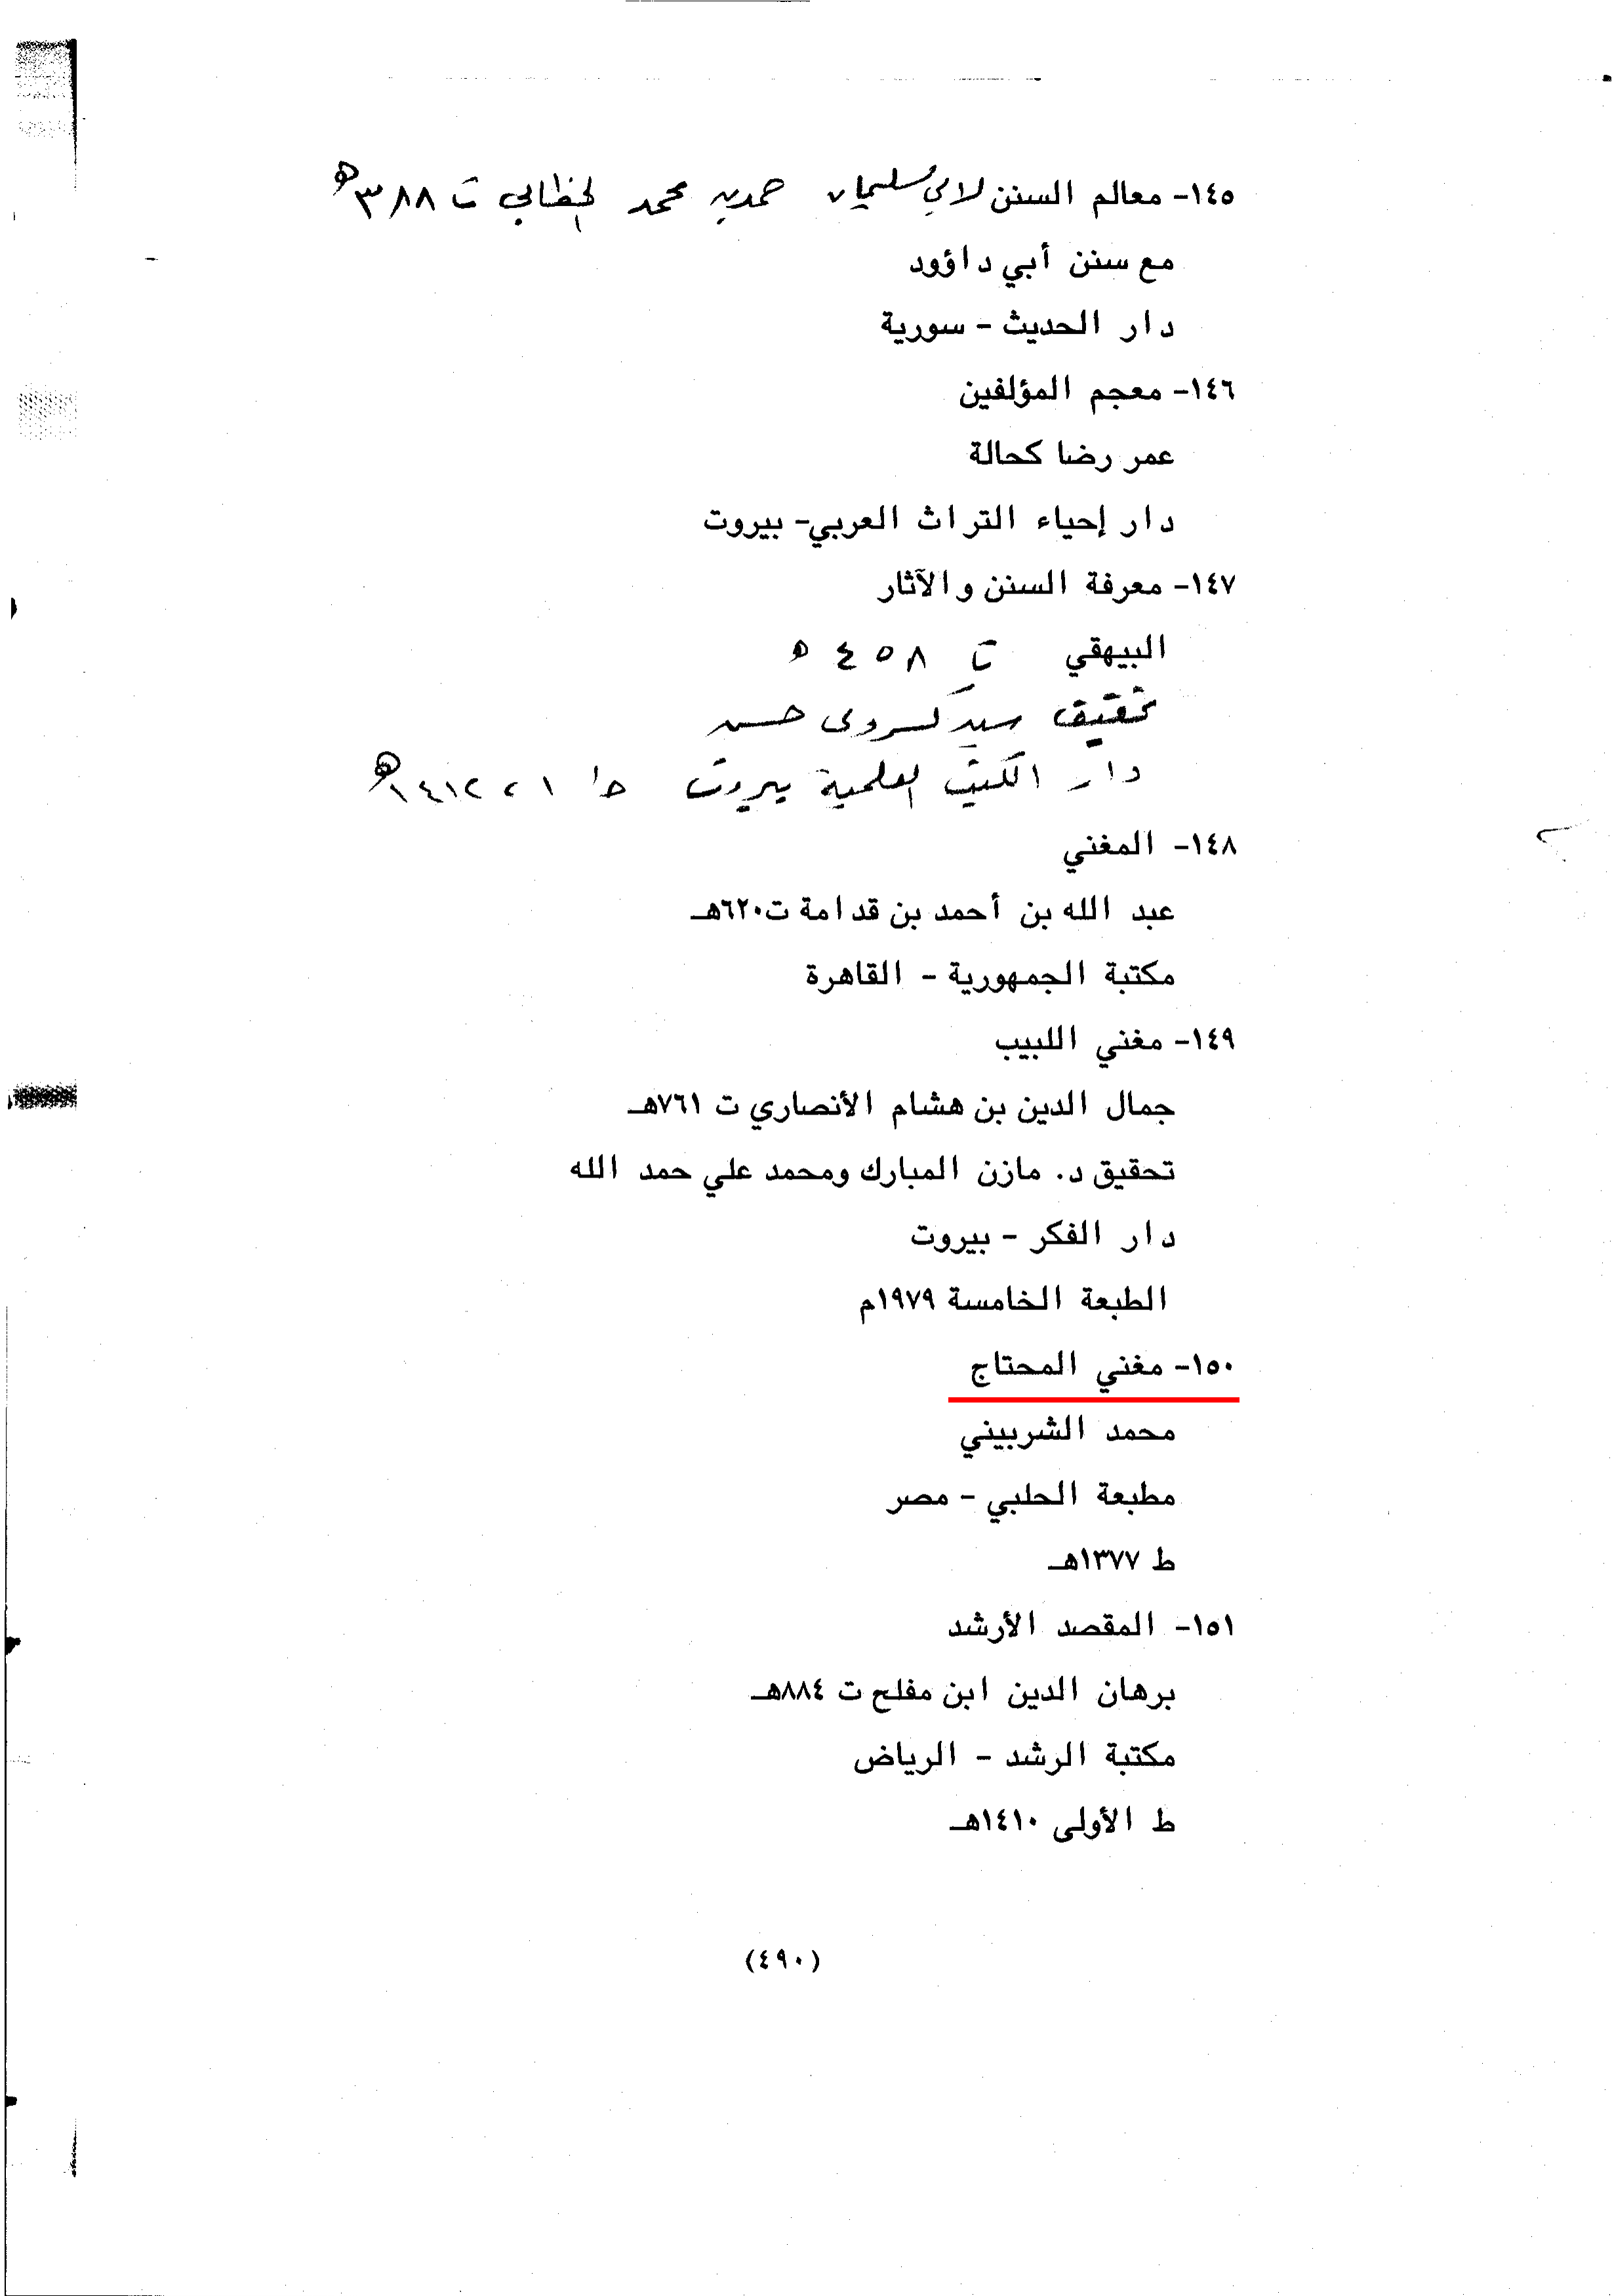 ١٤٥- معالم السنن لأبي سليمان حمد بن محمد الخطابي ت ٣٨٨ هـ
مع سنن أبي داؤود
دار الحديث - سورية
١٤٦- معجم المؤلفين
عمر رضا كحالة
دار إحياء التراث العربي- بيروت
١٤٧- معرفة السنن والآثار
البيهقي ت ٤٥٨ هـ
تحقيق سيد كسروي حسن
دار الكتب العلمية بيروت ط ١، ١٤١٢هـ
١٤٨- المغني
عبد الله بن أحمد بن قدامة ت٦٢٠هـ
مكتبة الجمهورية - القاهرة
١٤٩- مغني اللبيب
جمال الدين بن هشام الأنصاري ت ٧٦١هـ
تحقيق د. مازن المبارك ومحمد علي حمد الله
دار الفكر - بيروت
الطبعة الخامسة ١٩٧٩م
١٥٠- مغني المحتاج
محمد الشربيني
مطبعة الحلبي - مصر
ط ١٣٧٧هـ
١٥١- المقصد الأرشد
برهان الدين ابن مفلح ت ٨٨٤هـ
مكتبة الرشد - الرياض
ط الأولى ١٤١٠هـ
(٤٩٠)